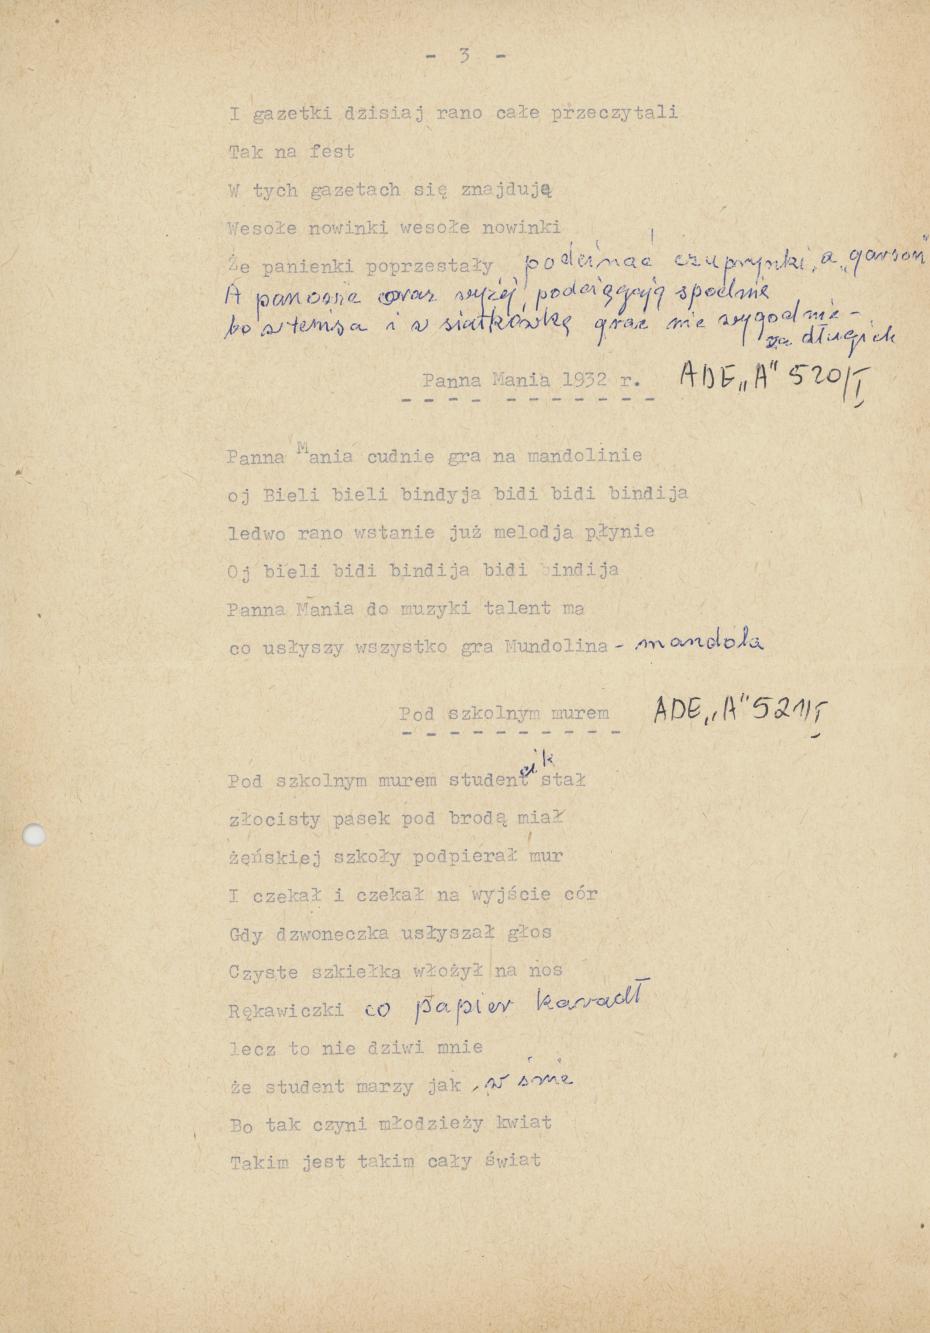 - 3 -
I gazetki dzisiaj rano całe przeczytali
Tak na fest
W tych gazetach się znajdują
Wesołe nowinki wesołe nowinki
Że panienki poprzestały podcinać czuprynki, a „garson"
A panowie coraz wyżej, podciągają spodnie
bo w tenisa i w siatkówkę grać nie wygodnie -
za długich
Panna Mania 1932 r. ADE „A" 520/I
Panna Mania cudnie gra na mandolinie
oj Bieli bieli bindyja bidi bidi bindija
ledwo rano wstanie już melodja płynie
Oj bieli bidi bindija bidi bindija
Panna Mania do muzyki talent ma
co usłyszy wszystko gra Mundolina - mandola
Pod szkolnym murem ADE „A" 521/I
Pod szkolnym murem studencik stał
złocisty pasek pod brodą miał
żęńskiej szkoły podpierał mur
I czekał i czekał na wyjście cór
Gdy dzwoneczka usłyszał głos
Czyste szkiełka włożył na nos
Rękawiczki co papier karadł
lecz to nie dziwi mnie
że student marzy jak w śnie
Bo tak czyni młodzieży kwiat
Takim jest takim cały świat